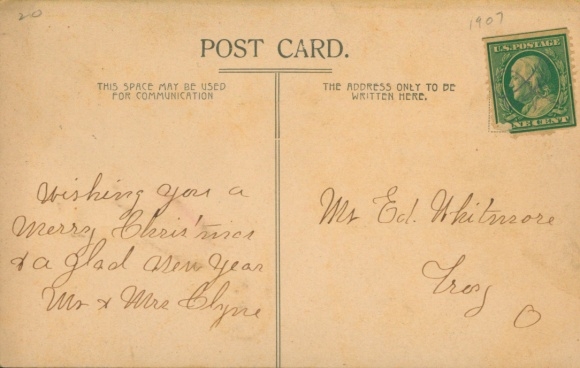 20
1907
U.S. POSTAGE
NE CENT
POST CARD.
THIS SPACE MAY BE USED
FOR COMMUNICATION
THE ADDRESS ONLY TO BE
WRITTEN HERE.
Wishing you a
Merry Chris'mas
& a glad New Year
Mr & Mrs Clyne
Mr Ed. Whitmore
Troy
O